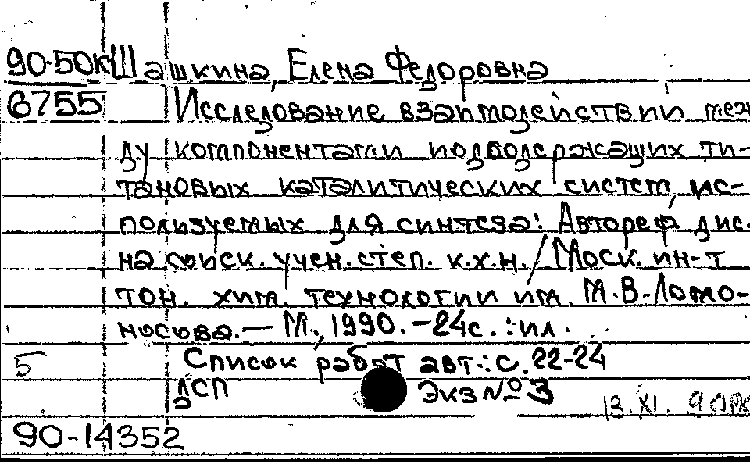 90-50к Шашкина, Елена Федоровна
6755 Исследование взаимодействий меж-
ду компонентами иодсодержащих ти-
тановых каталитических систем, ис-
пользуемых для синтеза: Автореф. дис.
на соиск. учен. степ. к.х.н. / Моск. ин-т
тон. хим. технологии им. М.В. Ломо-
носова. — М., 1990. - 24с. : ил.
5 Список работ авт.: с. 22-24
ДСП Экз № 3
13.XI.90
90-14352